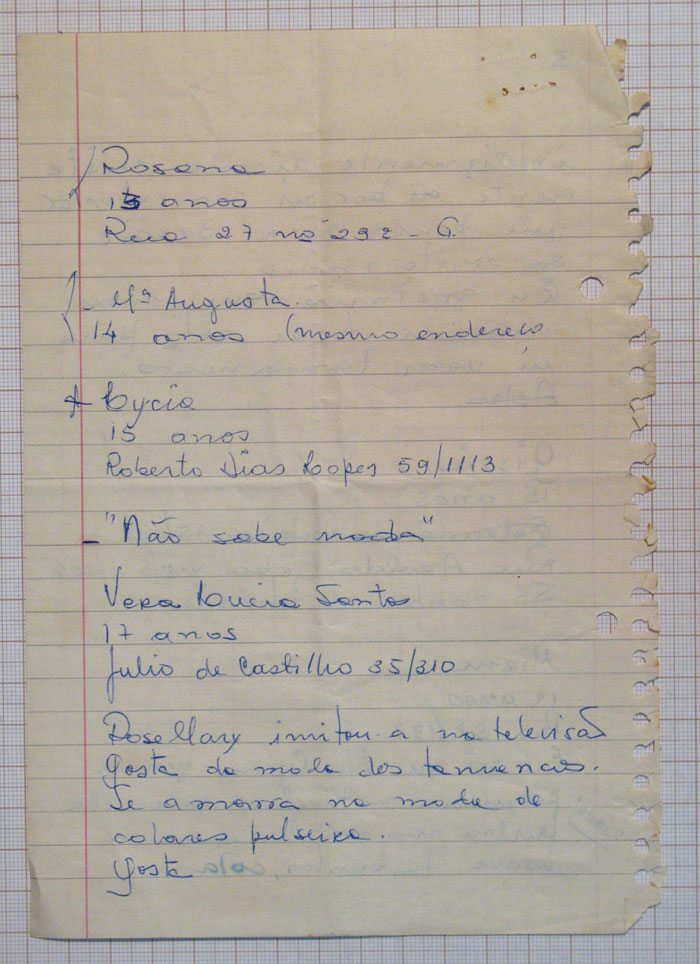 Rosana
13 anos
Rua 27 nº 292 - G.
- Mª Augusta.
14 anos (mesmo endereço
Lycia
15 anos
Roberto Dias Lopes 59/1113
- "Não sabe nada"
Vera Lucia Santos
17 anos
Julio de Castilho 35/310
RoseMary imitou-a na televisão
Gosta da moda dos
Se amarra na moda de
colares pulseira.
Gosta